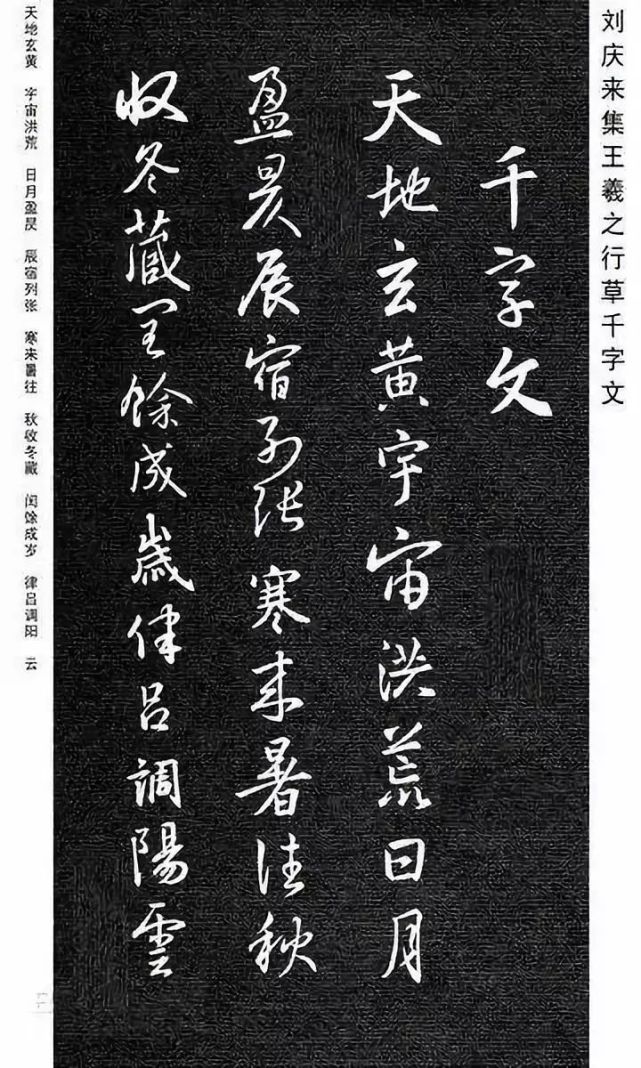 刘庆来集王羲之行草千字文
千字文
天地玄黄宇宙洪荒日月
盈昃辰宿列張寒来暑往秋
收冬藏閏餘成歲律吕調陽雲
天地玄黄 宇宙洪荒 日月盈昃 辰宿列张 寒来暑往 秋收冬藏 闰馀成岁 律吕调阳 云